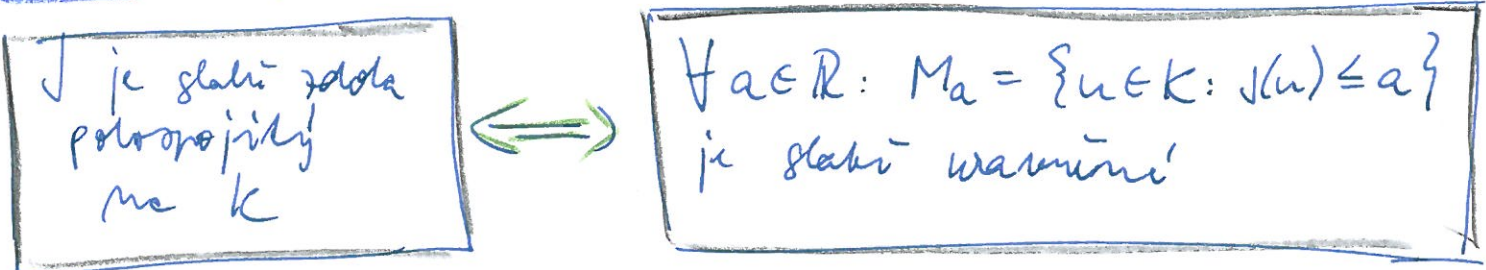 J je slabě zdola
polospojitý
na K
⟺
∀ a ∈ ℝ: Mₐ = {u ∈ K: J(u) ≤ a}
je slabě uzavřená